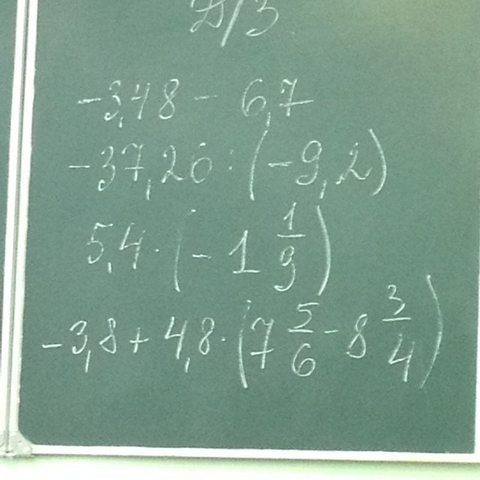 Д/З.
-3,48 - 6,7
-37,26 : (-9,2)
5,4 · (-1 1/9)
-3,8 + 4,8 · (7 5/6 - 8 3/4)